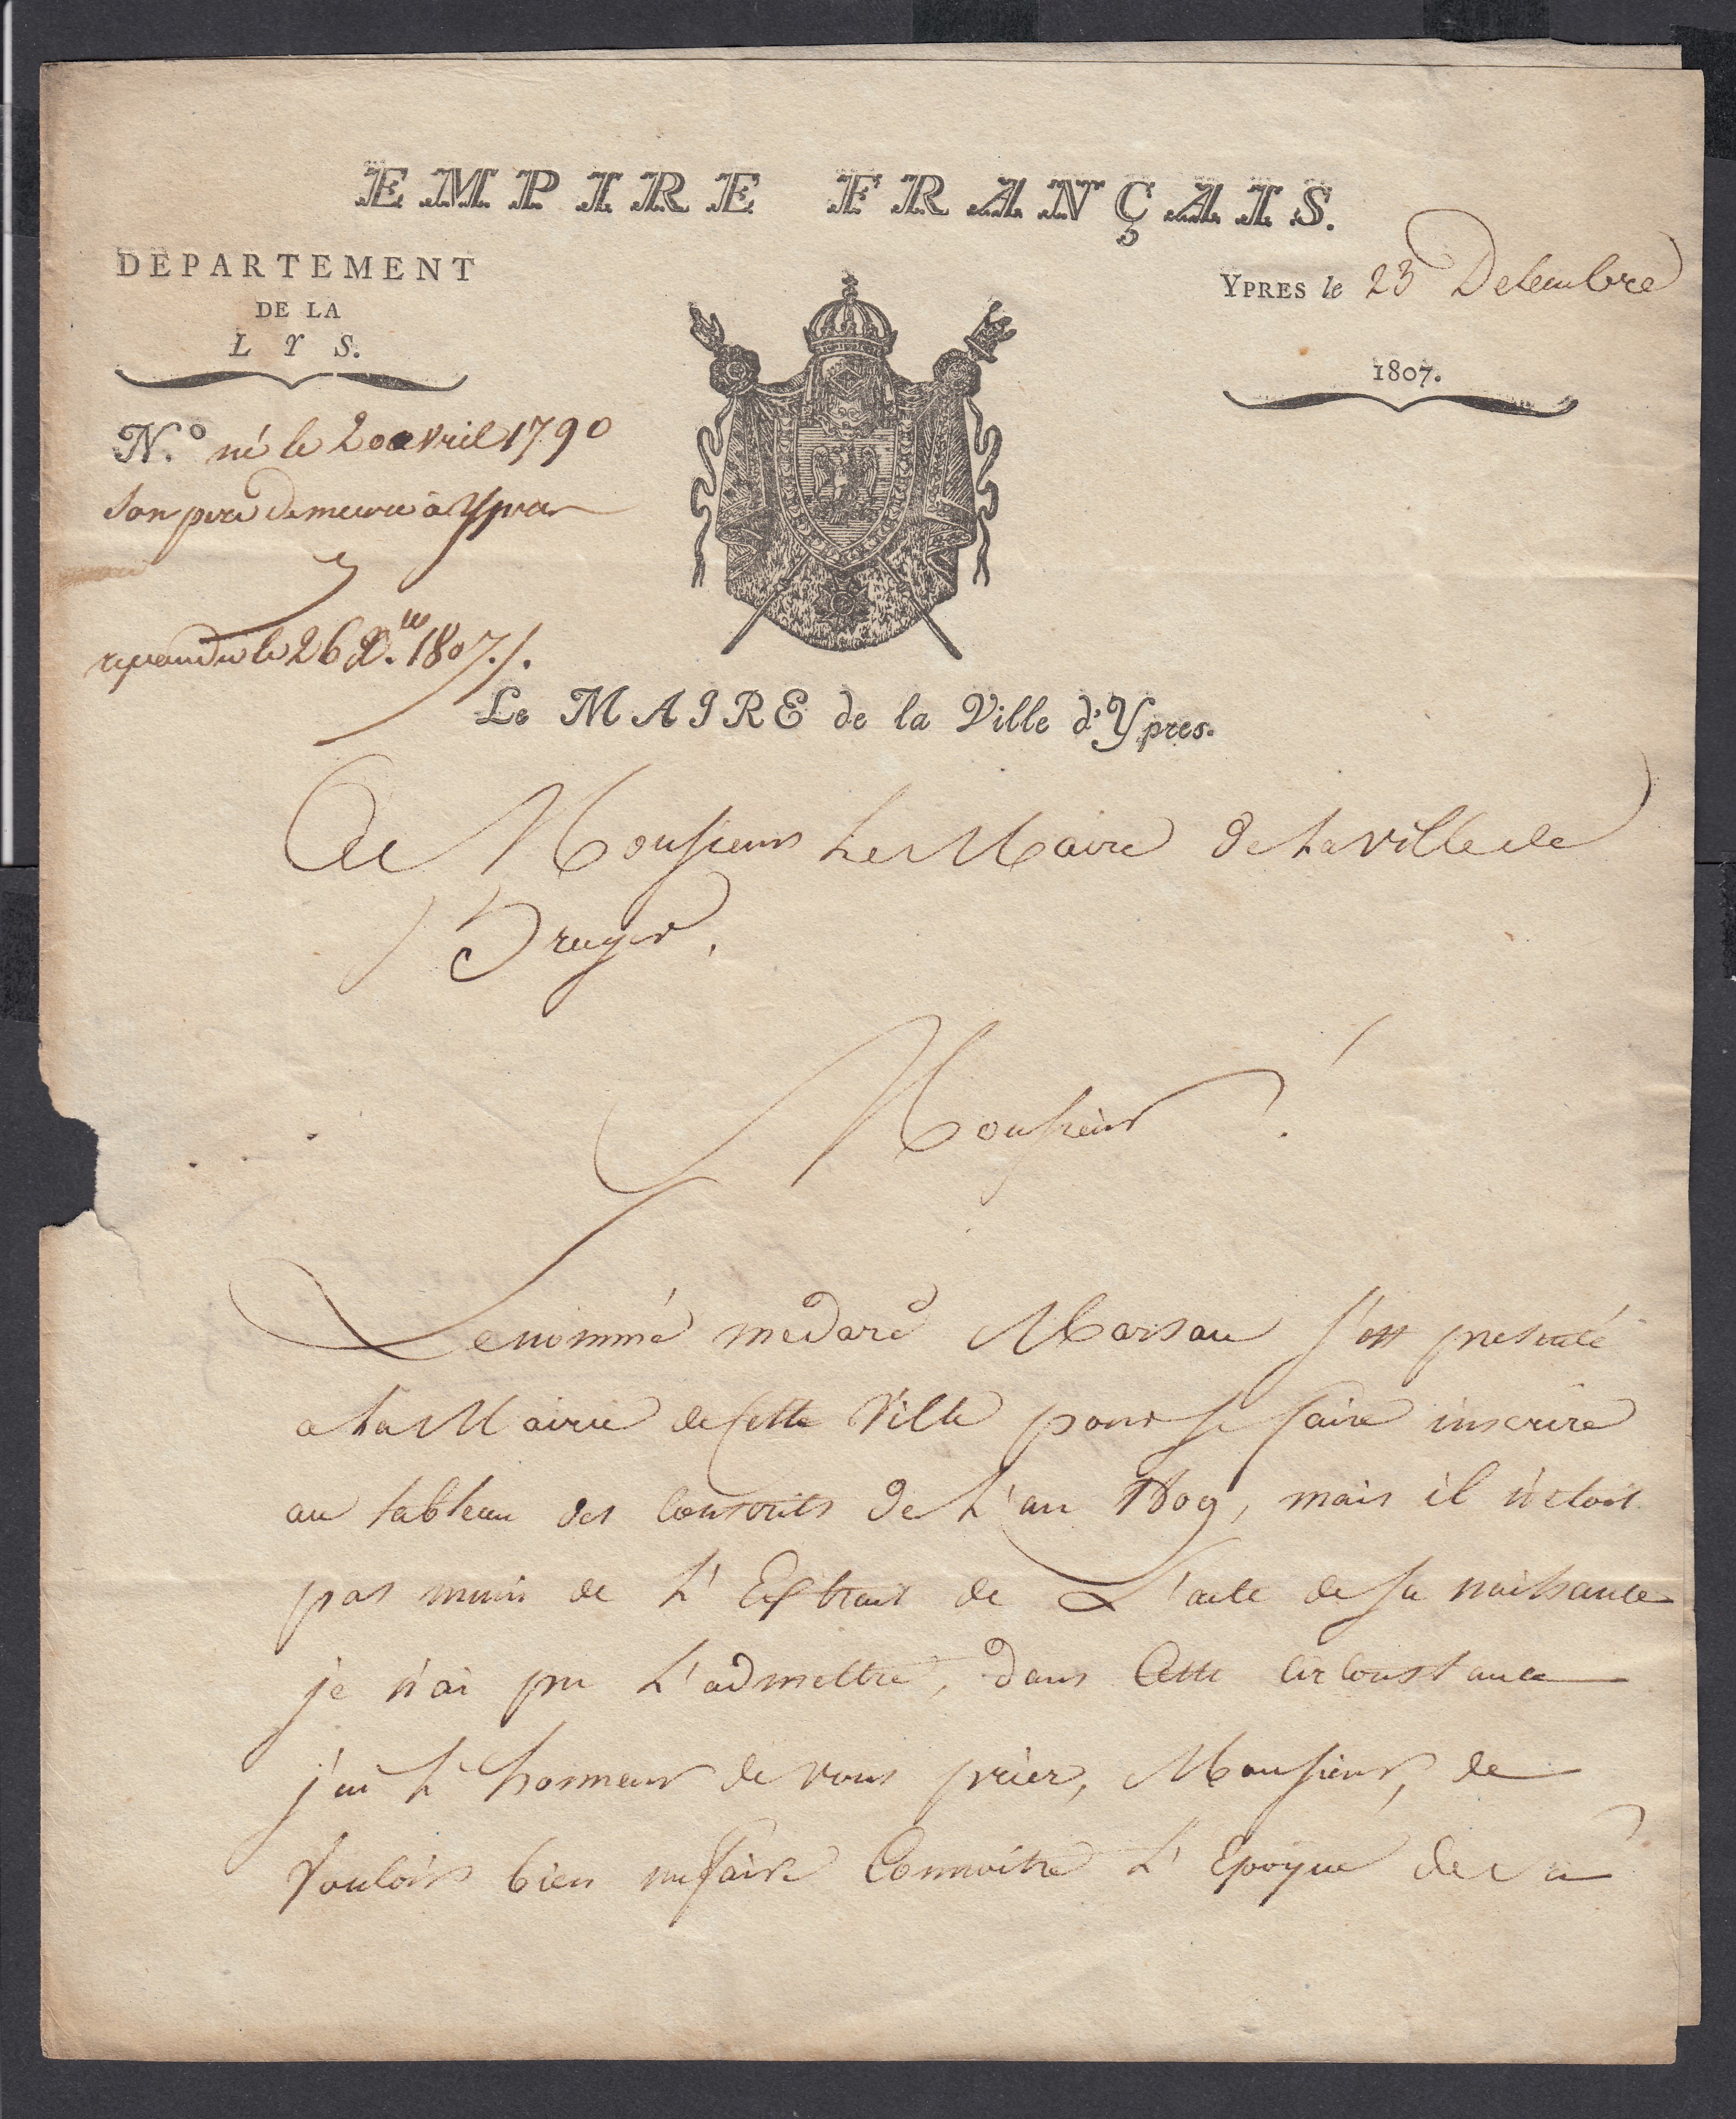 EMPIRE FRANÇAIS.
DEPARTEMENT
DE LA
LYS.
YPRES le 23 Decembre
1807.
N.º né le 20 avril 1790
son pere demeure à Ypres
repondu le 26 X.bre 1807./.
Le MAIRE de la Ville d'Ypres.
A Monsieur Le Maire de La ville de
Bruges.
Monsieur!
Le nommé medard Marsau s'est presenté
a La Mairie de Cette Ville pour se faire inscrire
au tableau des Conscrits de L'an 1809, mais il n'etoit
pas muni de L'Extrait de L'acte de sa naissance
je n'ai pu L'admettre, dans Cette Circonstance
j'ai L'honneur de vous prier, Monsieur, de
Vouloir bien me faire Connoitre L'Epoque de sa